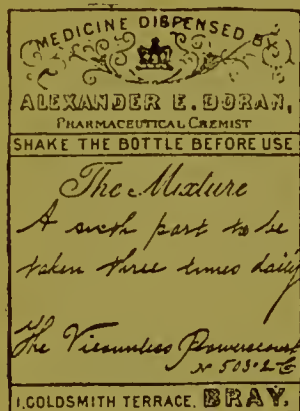 MEDICINE DISPENSED BY
ALEXANDER E. DORAN,
PHARMACEUTICAL CHEMIST
SHAKE THE BOTTLE BEFORE USE
The Mixture
A sixth part to be
taken three times daily
The Viscountess Powerscourt
1. GOLDSMITH TERRACE. BRAY.